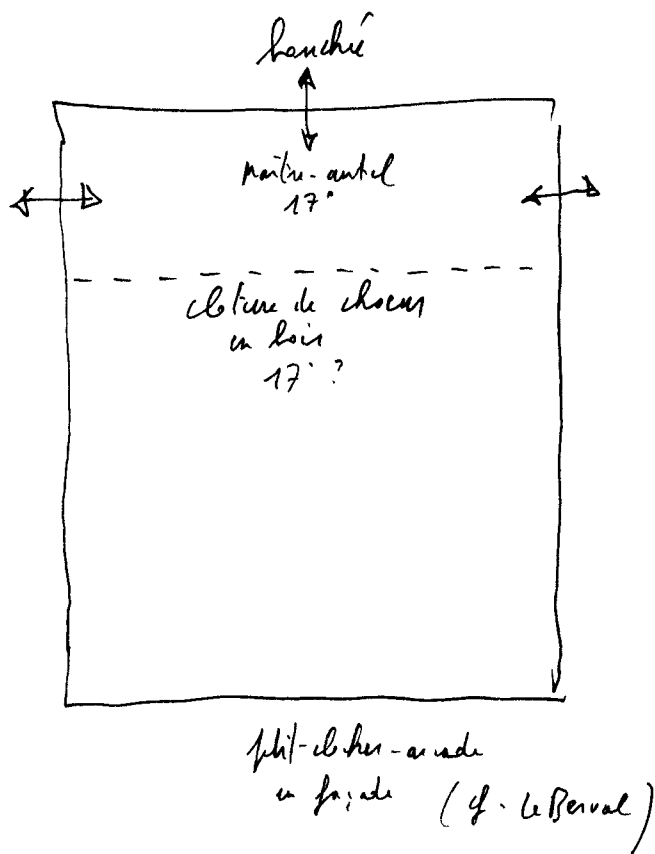 bouchée
maître-autel
17°
clôture de choeur
en bois
17° ?
petit-clocher-arcade
en façade (cf. Le Berval)